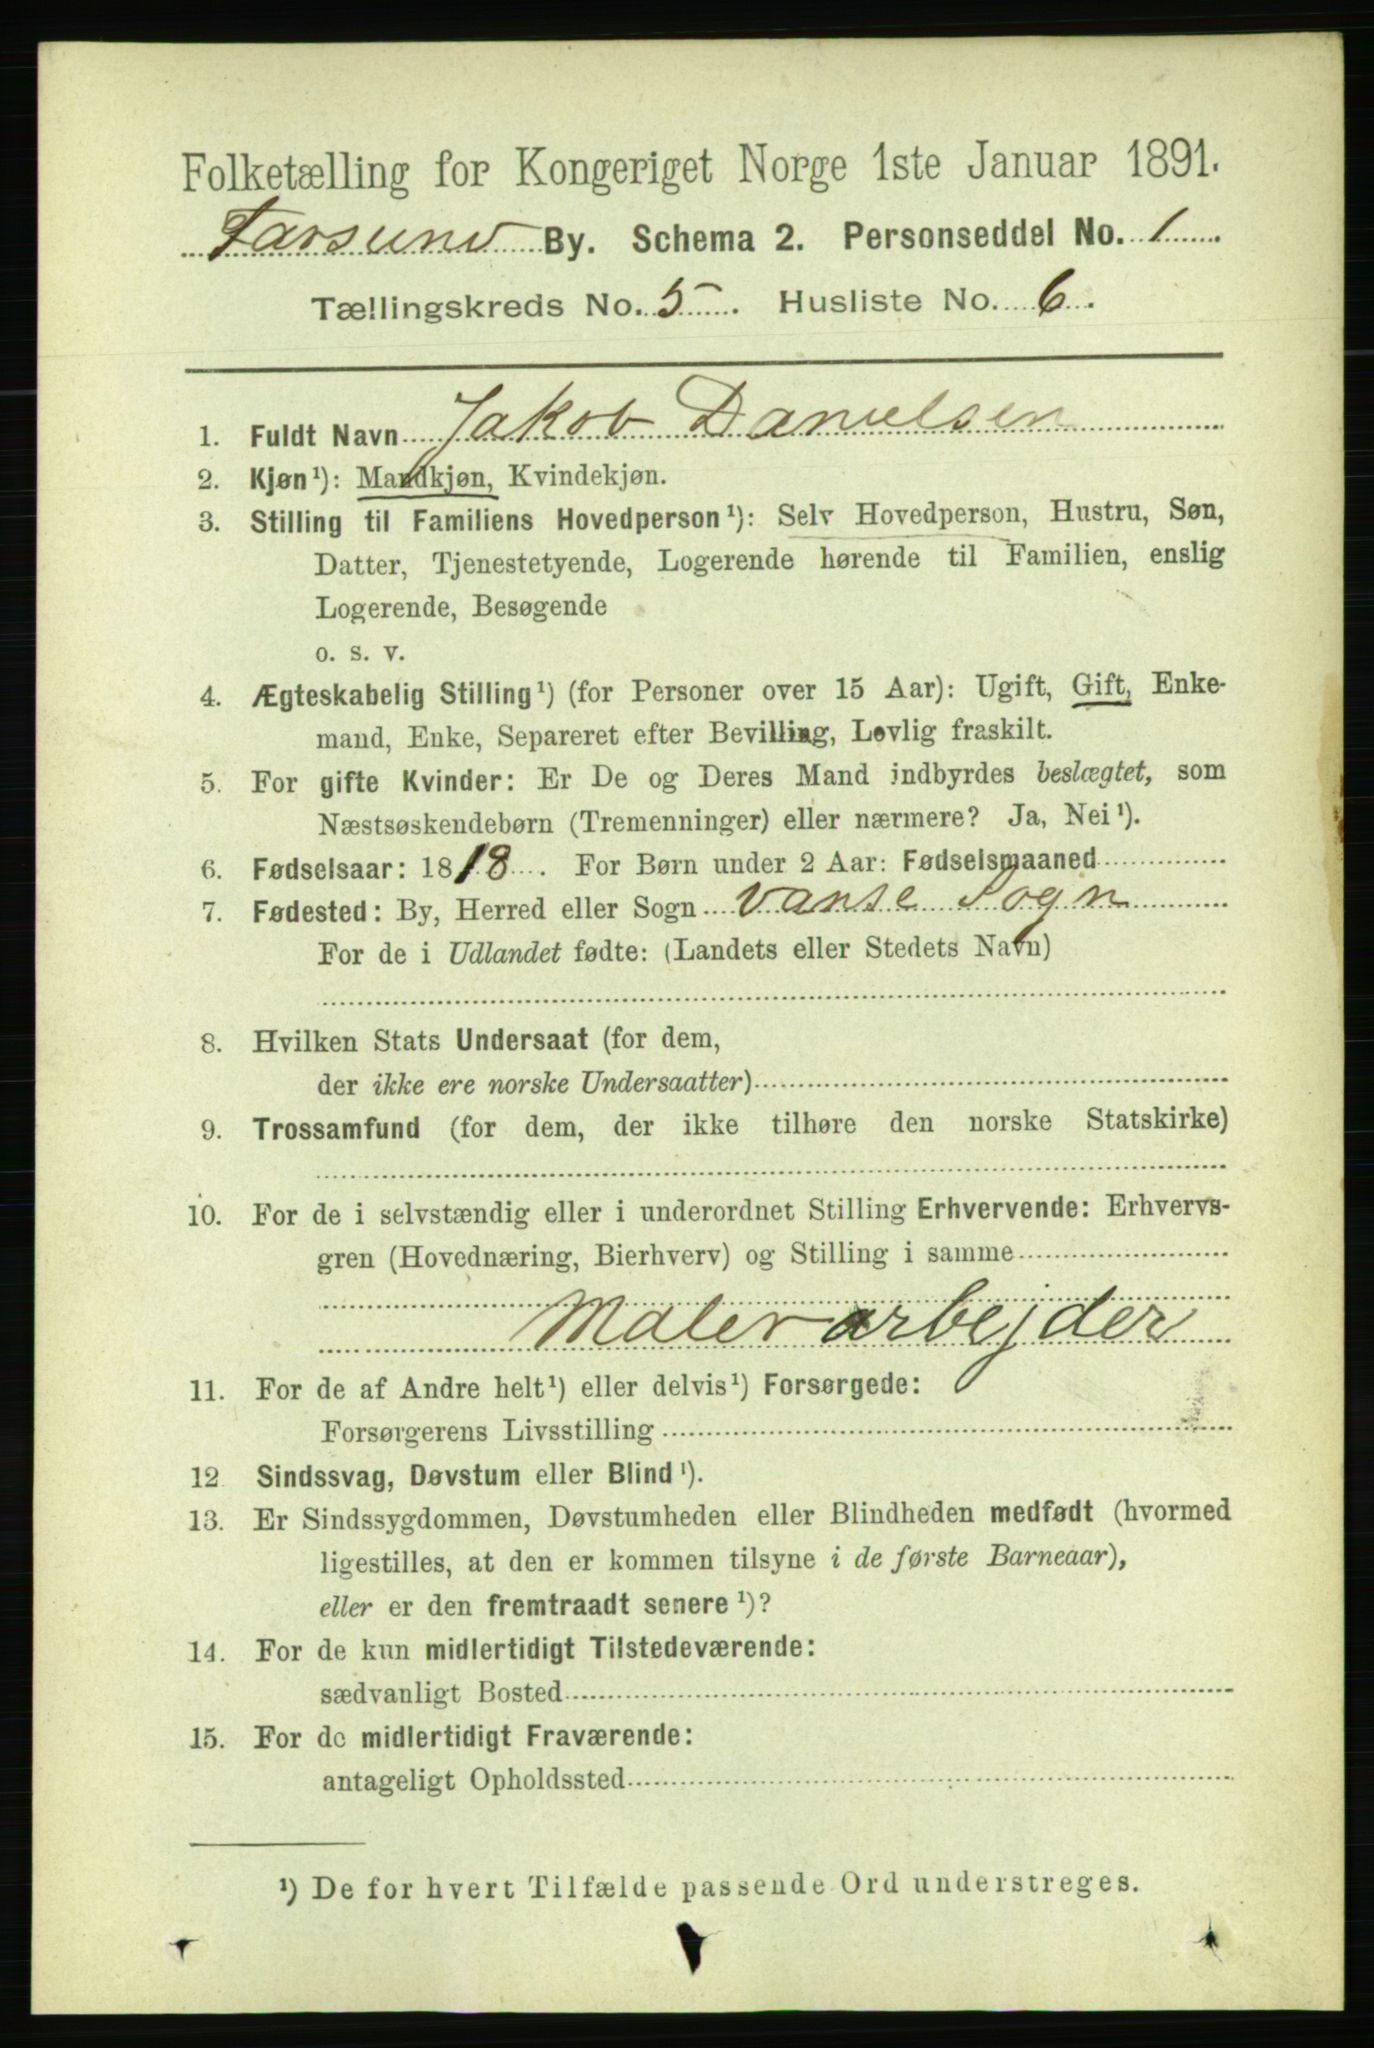 Folketælling for Kongeriget Norge 1ste Januar 1891.
Farsund By. Schema 2. Personseddel No. 1
Tællingskreds No. 5. Husliste No. 6.
1. Fuldt Navn Jakob Danielsen
2. Kjøn¹): Mandkjøn, Kvindekjøn.
3. Stilling til Familiens Hovedperson¹): Selv Hovedperson, Hustru, Søn,
Datter, Tjenestetyende, Logerende hørende til Familien, enslig
Logerende, Besøgende
o. s. v.
4. Ægteskabelig Stilling¹) (for Personer over 15 Aar): Ugift, Gift, Enke-
mand, Enke, Separeret efter Bevilling, Lovlig fraskilt.
5. For gifte Kvinder: Er De og Deres Mand indbyrdes beslægtet, som
Næstsøskendebørn (Tremenninger) eller nærmere? Ja, Nei¹).
6. Fødselsaar: 1818. For Børn under 2 Aar: Fødselsmaaned
7. Fødested: By, Herred eller Sogn Vanse Sogn
For de i Udlandet fødte: (Landets eller Stedets Navn)
8. Hvilken Stats Undersaat (for dem,
der ikke ere norske Undersaatter)
9. Trossamfund (for dem, der ikke tilhøre den norske Statskirke)
10. For de i selvstændig eller i underordnet Stilling Erhvervende: Erhvervs-
gren (Hovednæring, Bierhverv) og Stilling i samme
Malerarbejder
11. For de af Andre helt¹) eller delvis¹) Forsørgede:
Forsørgerens Livsstilling
12 Sindssvag, Døvstum eller Blind¹).
13. Er Sindssygdommen, Døvstumheden eller Blindheden medfødt (hvormed
ligestilles, at den er kommen tilsyne i de første Barneaar),
eller er den fremtraadt senere¹)?
14. For de kun midlertidigt Tilstedeværende:
sædvanligt Bosted
15. For de midlertidigt Fraværende:
antageligt Opholdssted
¹) De for hvert Tilfælde passende Ord understreges.